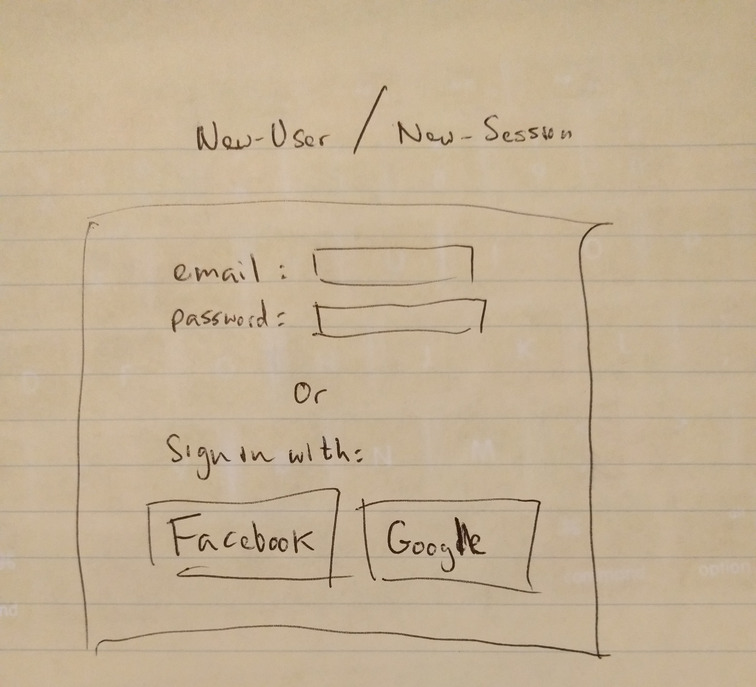 New-User / New-Session
email :
password:
Or
Sign in with:
Facebook Google